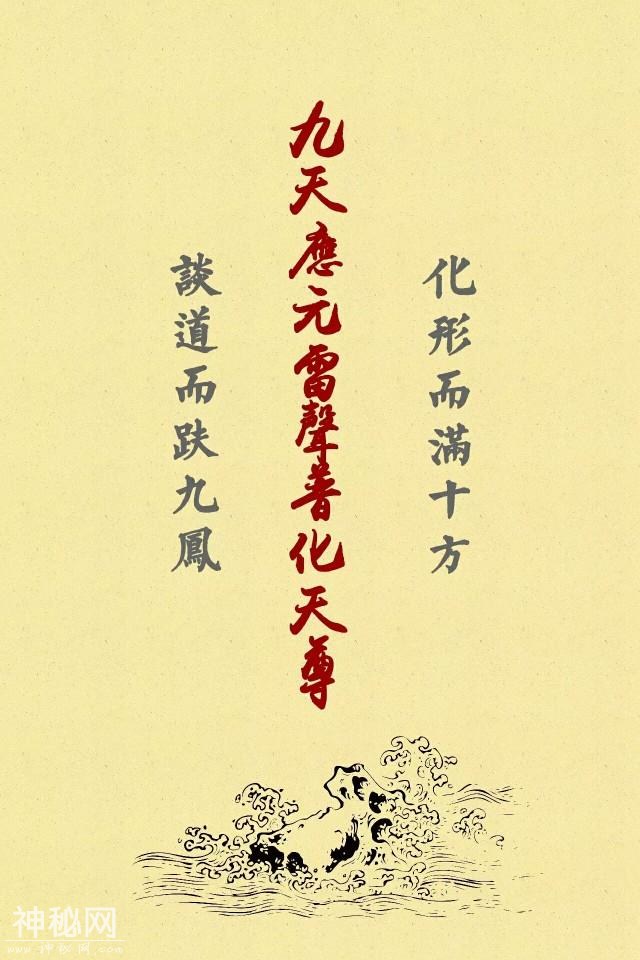 化形而滿十方
九天應元雷聲普化天尊
談道而趺九鳳
神秘网